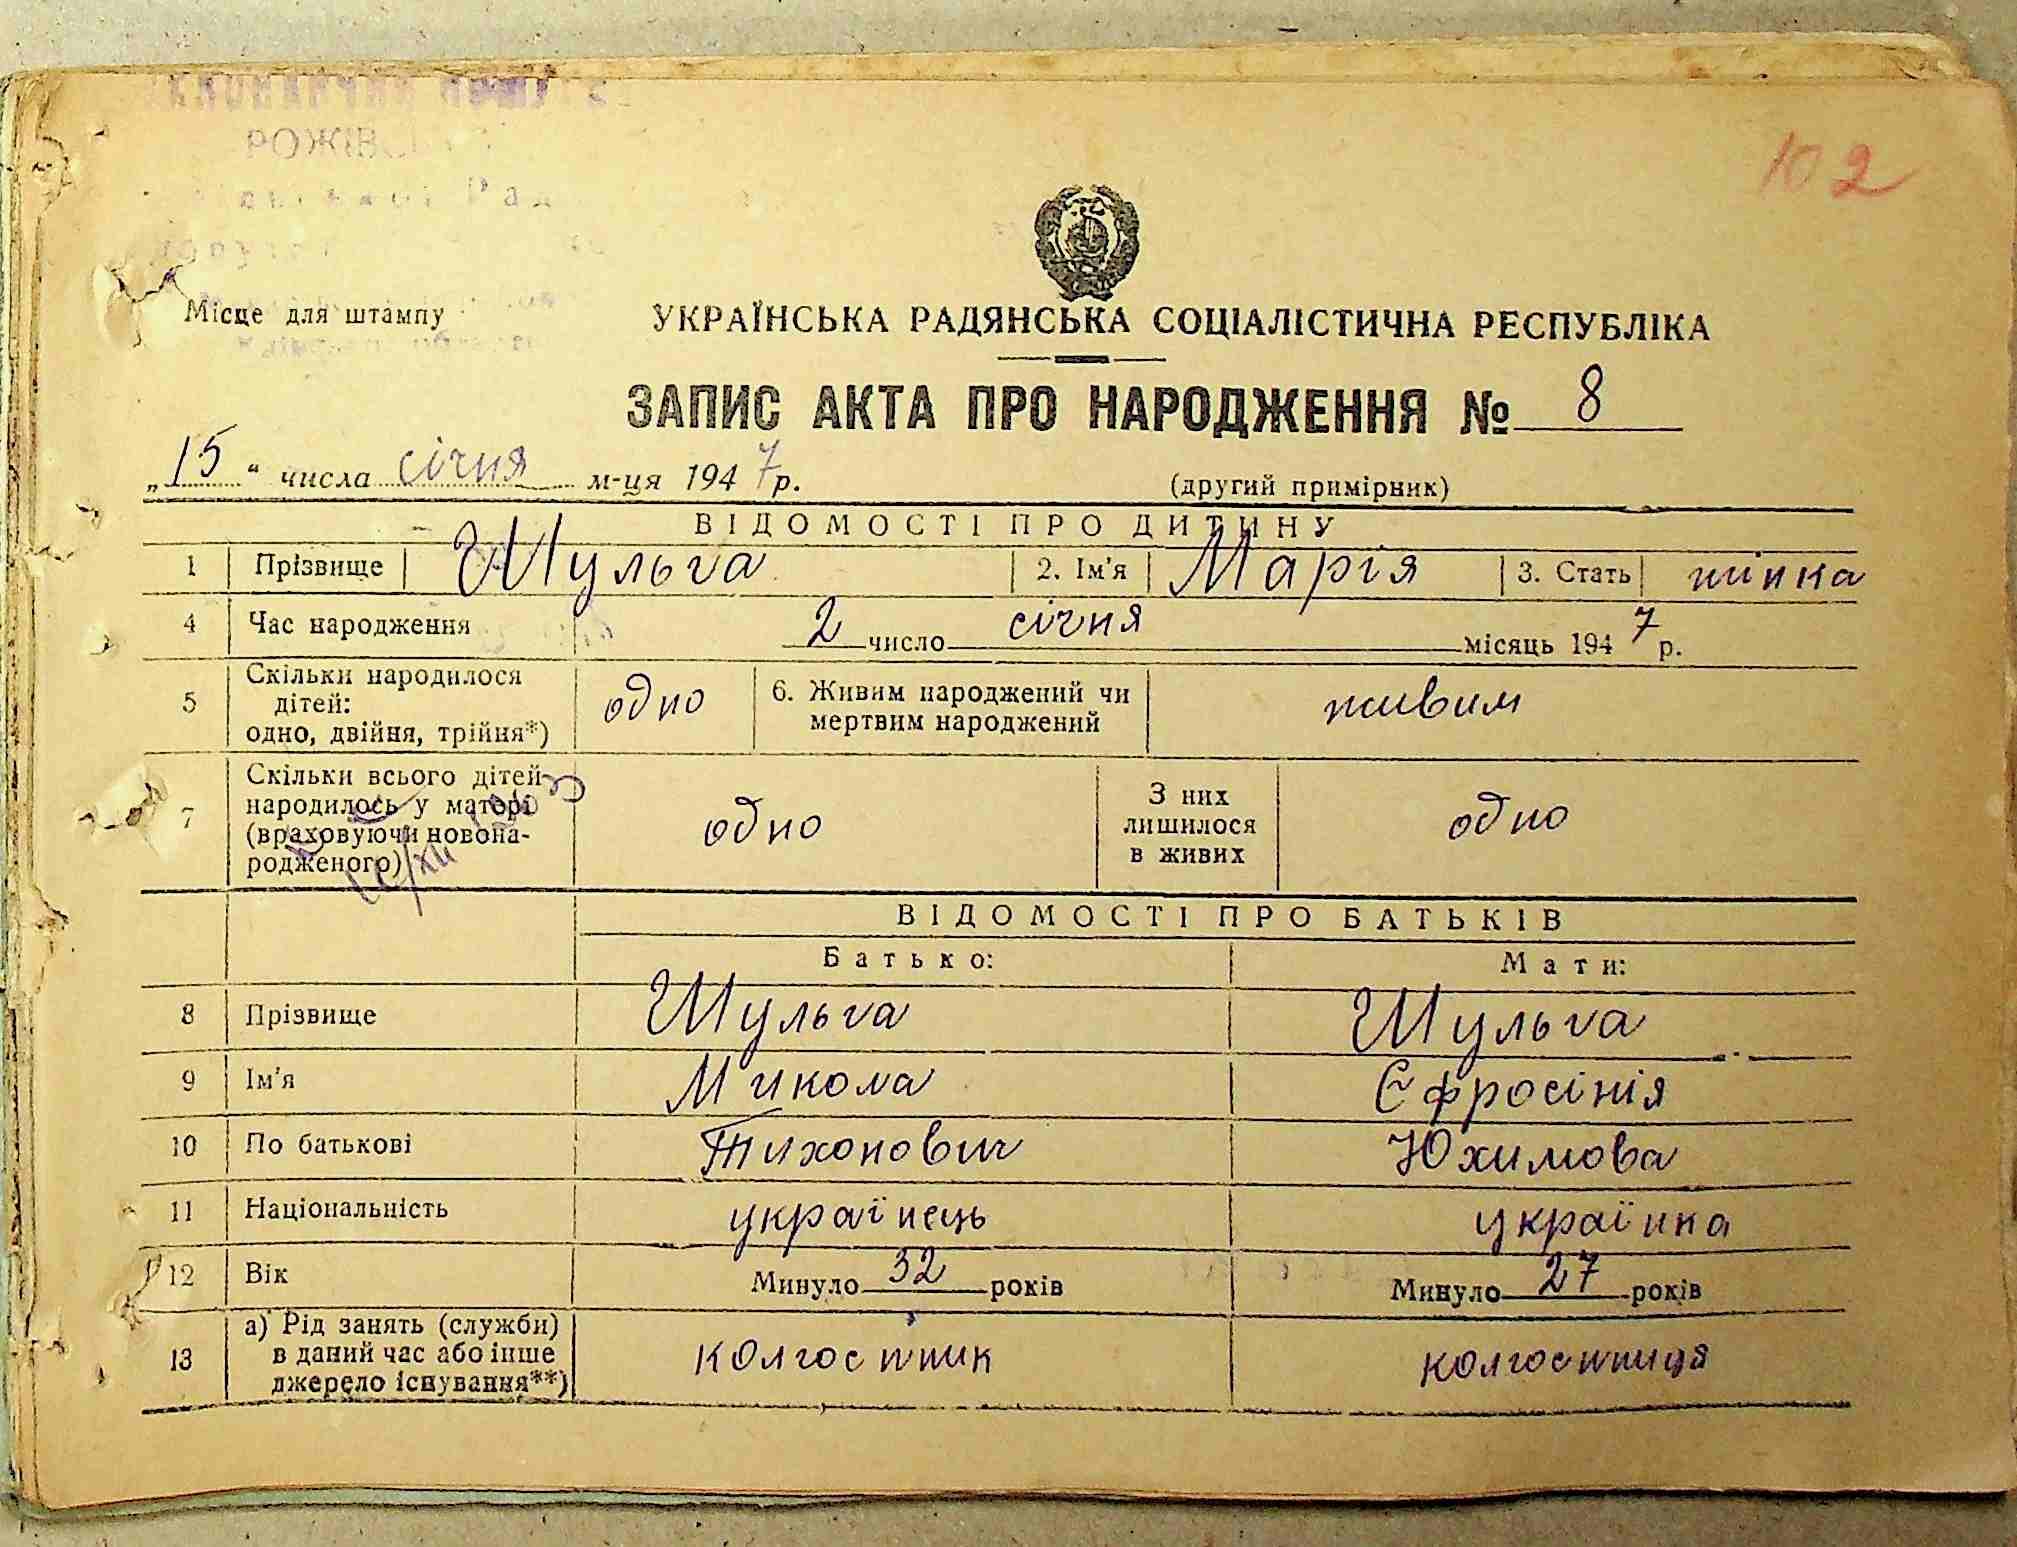 РОЖІВ
102
Місце для штампу
УКРАЇНСЬКА РАДЯНСЬКА СОЦІАЛІСТИЧНА РЕСПУБЛІКА
ЗАПИС АКТА ПРО НАРОДЖЕННЯ № 8
„15“ числа січня м-ця 1947 р.
(другий примірник)
ВІДОМОСТІ ПРО ДИТИНУ
1 Прізвище Шульга 2. Ім'я Марія 3. Стать жінка
4 Час народження 2 число січня місяць 1947 р.
5 Скільки народилося
дітей:
одно, двійня, трійня*)
одно
6. Живим народжений чи
мертвим народжений
живим
7 Скільки всього дітей
народилось у матері
(враховуючи новона-
родженого)
одно
З них
лишилося
в живих
одно
ВІДОМОСТІ ПРО БАТЬКІВ
Батько: Мати:
8 Прізвище Шульга Шульга
9 Ім'я Микола Єфросінія
10 По батькові Тихонович Юхимова
11 Національність українець українка
12 Вік Минуло 32 років Минуло 27 років
13 а) Рід занять (служби)
в даний час або інше
джерело існування**)
колгоспник колгоспниця